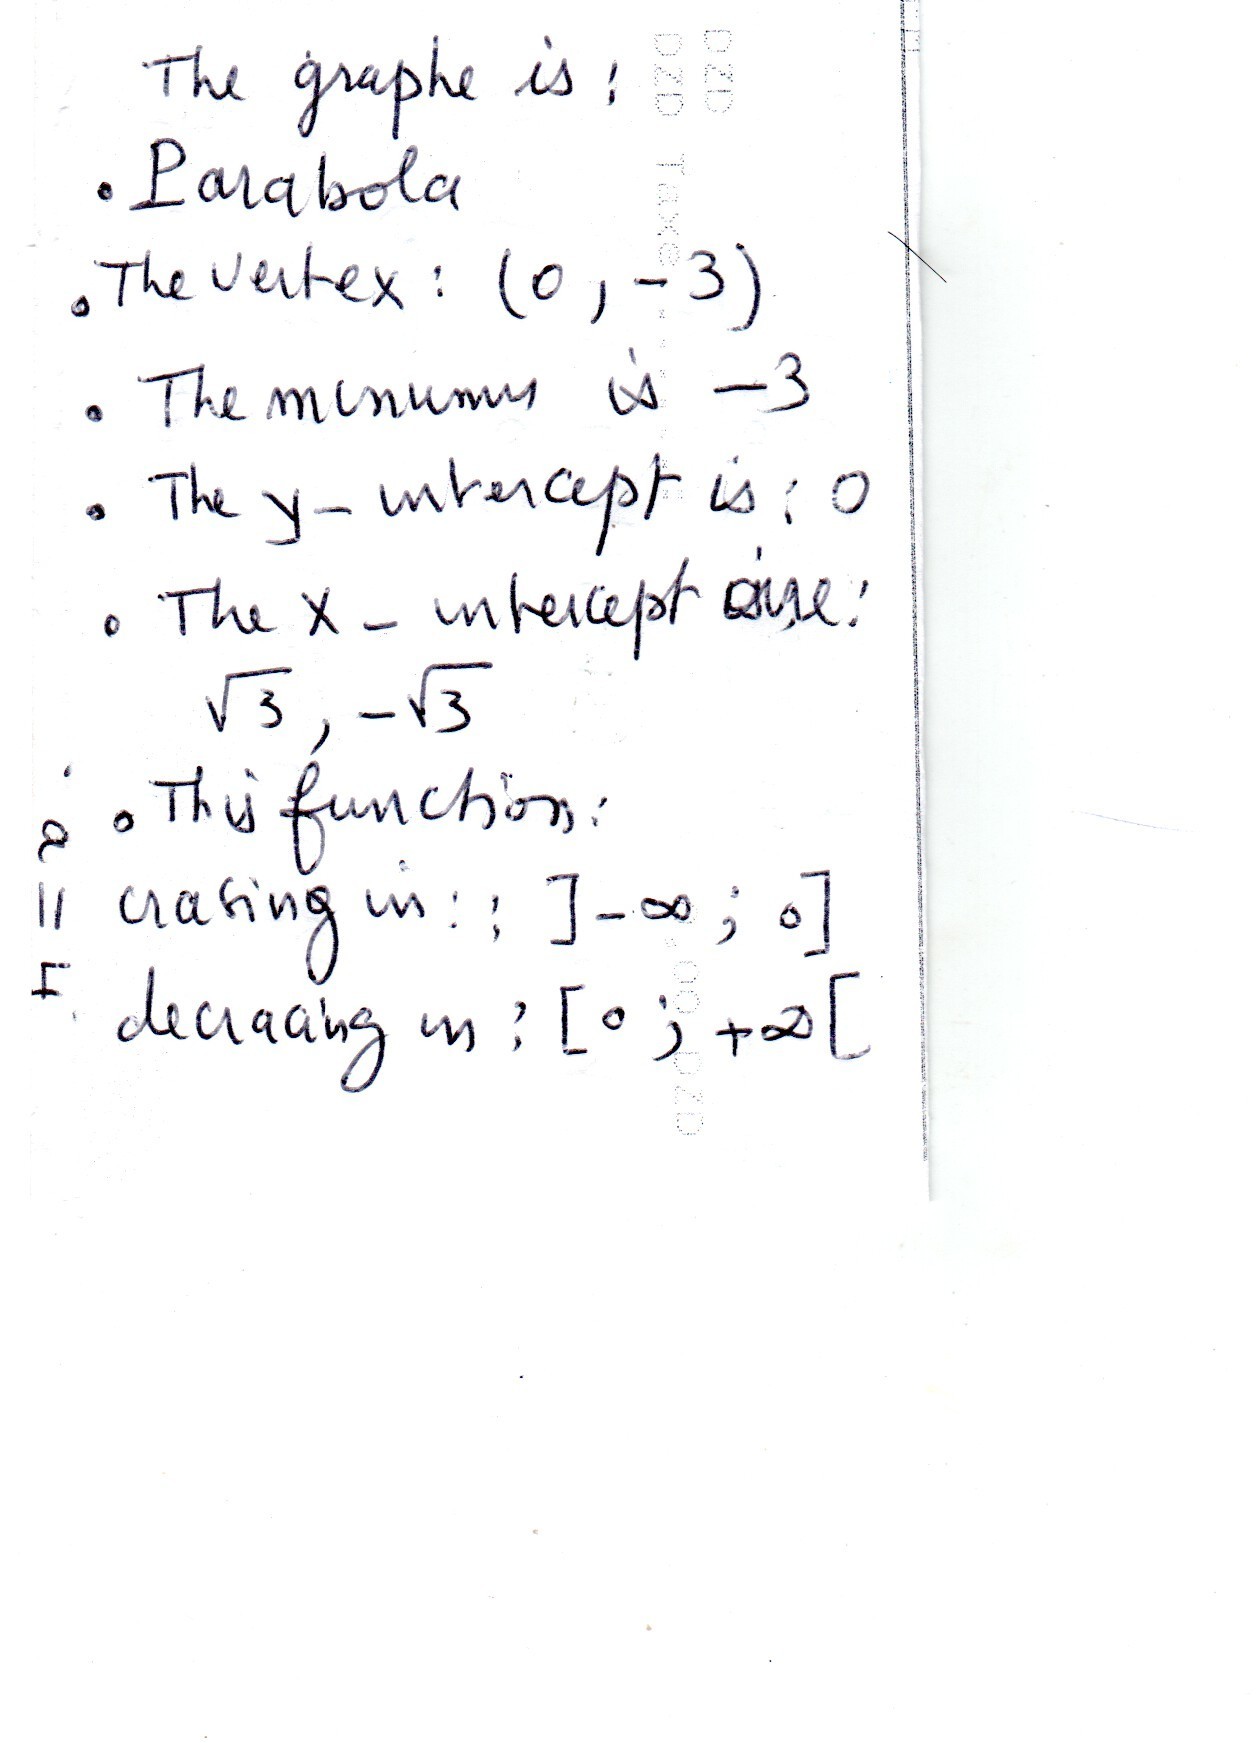 The graphe is :
• Parabola
• The vertex : (0 , -3)
• The minumus is -3
• The y- intercept is : 0
• The x - intercept are :
√3 , -√3
• This function :
crasing in : : ]-∞ ; 0]
decracing in : [0 ; +∞[
DZD
DZD Taxe
00 DZD